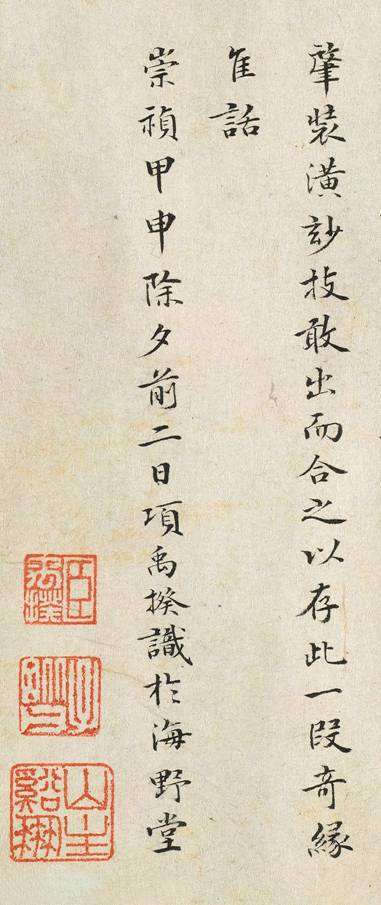 肇裝潢玅技敢出而合之以存此一段奇緣
佳話
崇禎甲申除夕前二日項禹揆識於海野堂